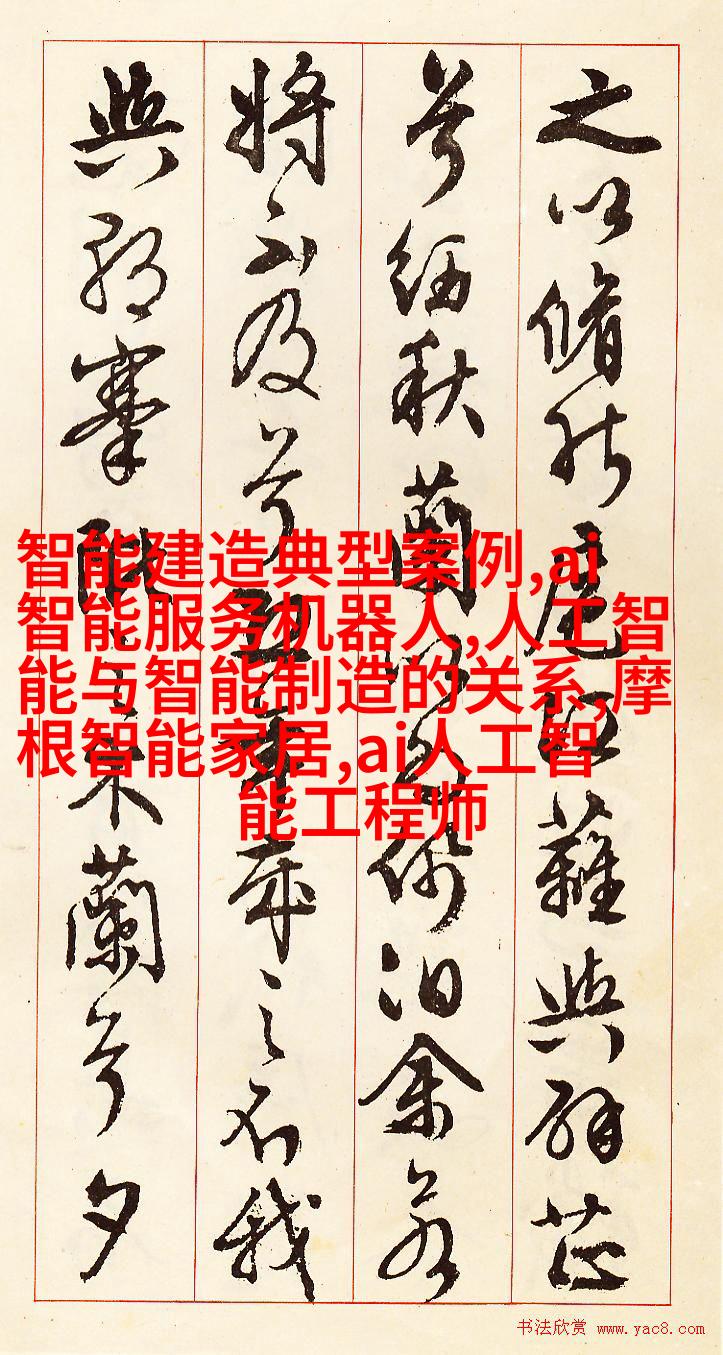 之以脩能扈江蘺與辟芷
兮紉秋蘭以為佩汩余若
將不及兮恐年歲之不我
與朝搴阰之木蘭兮夕
智能建造典型案例,ai
智能服务机器人,人工智
能与智能制造的关系,摩
根智能家居,ai人工智
能工程师
书法欣赏 www.yac8.com